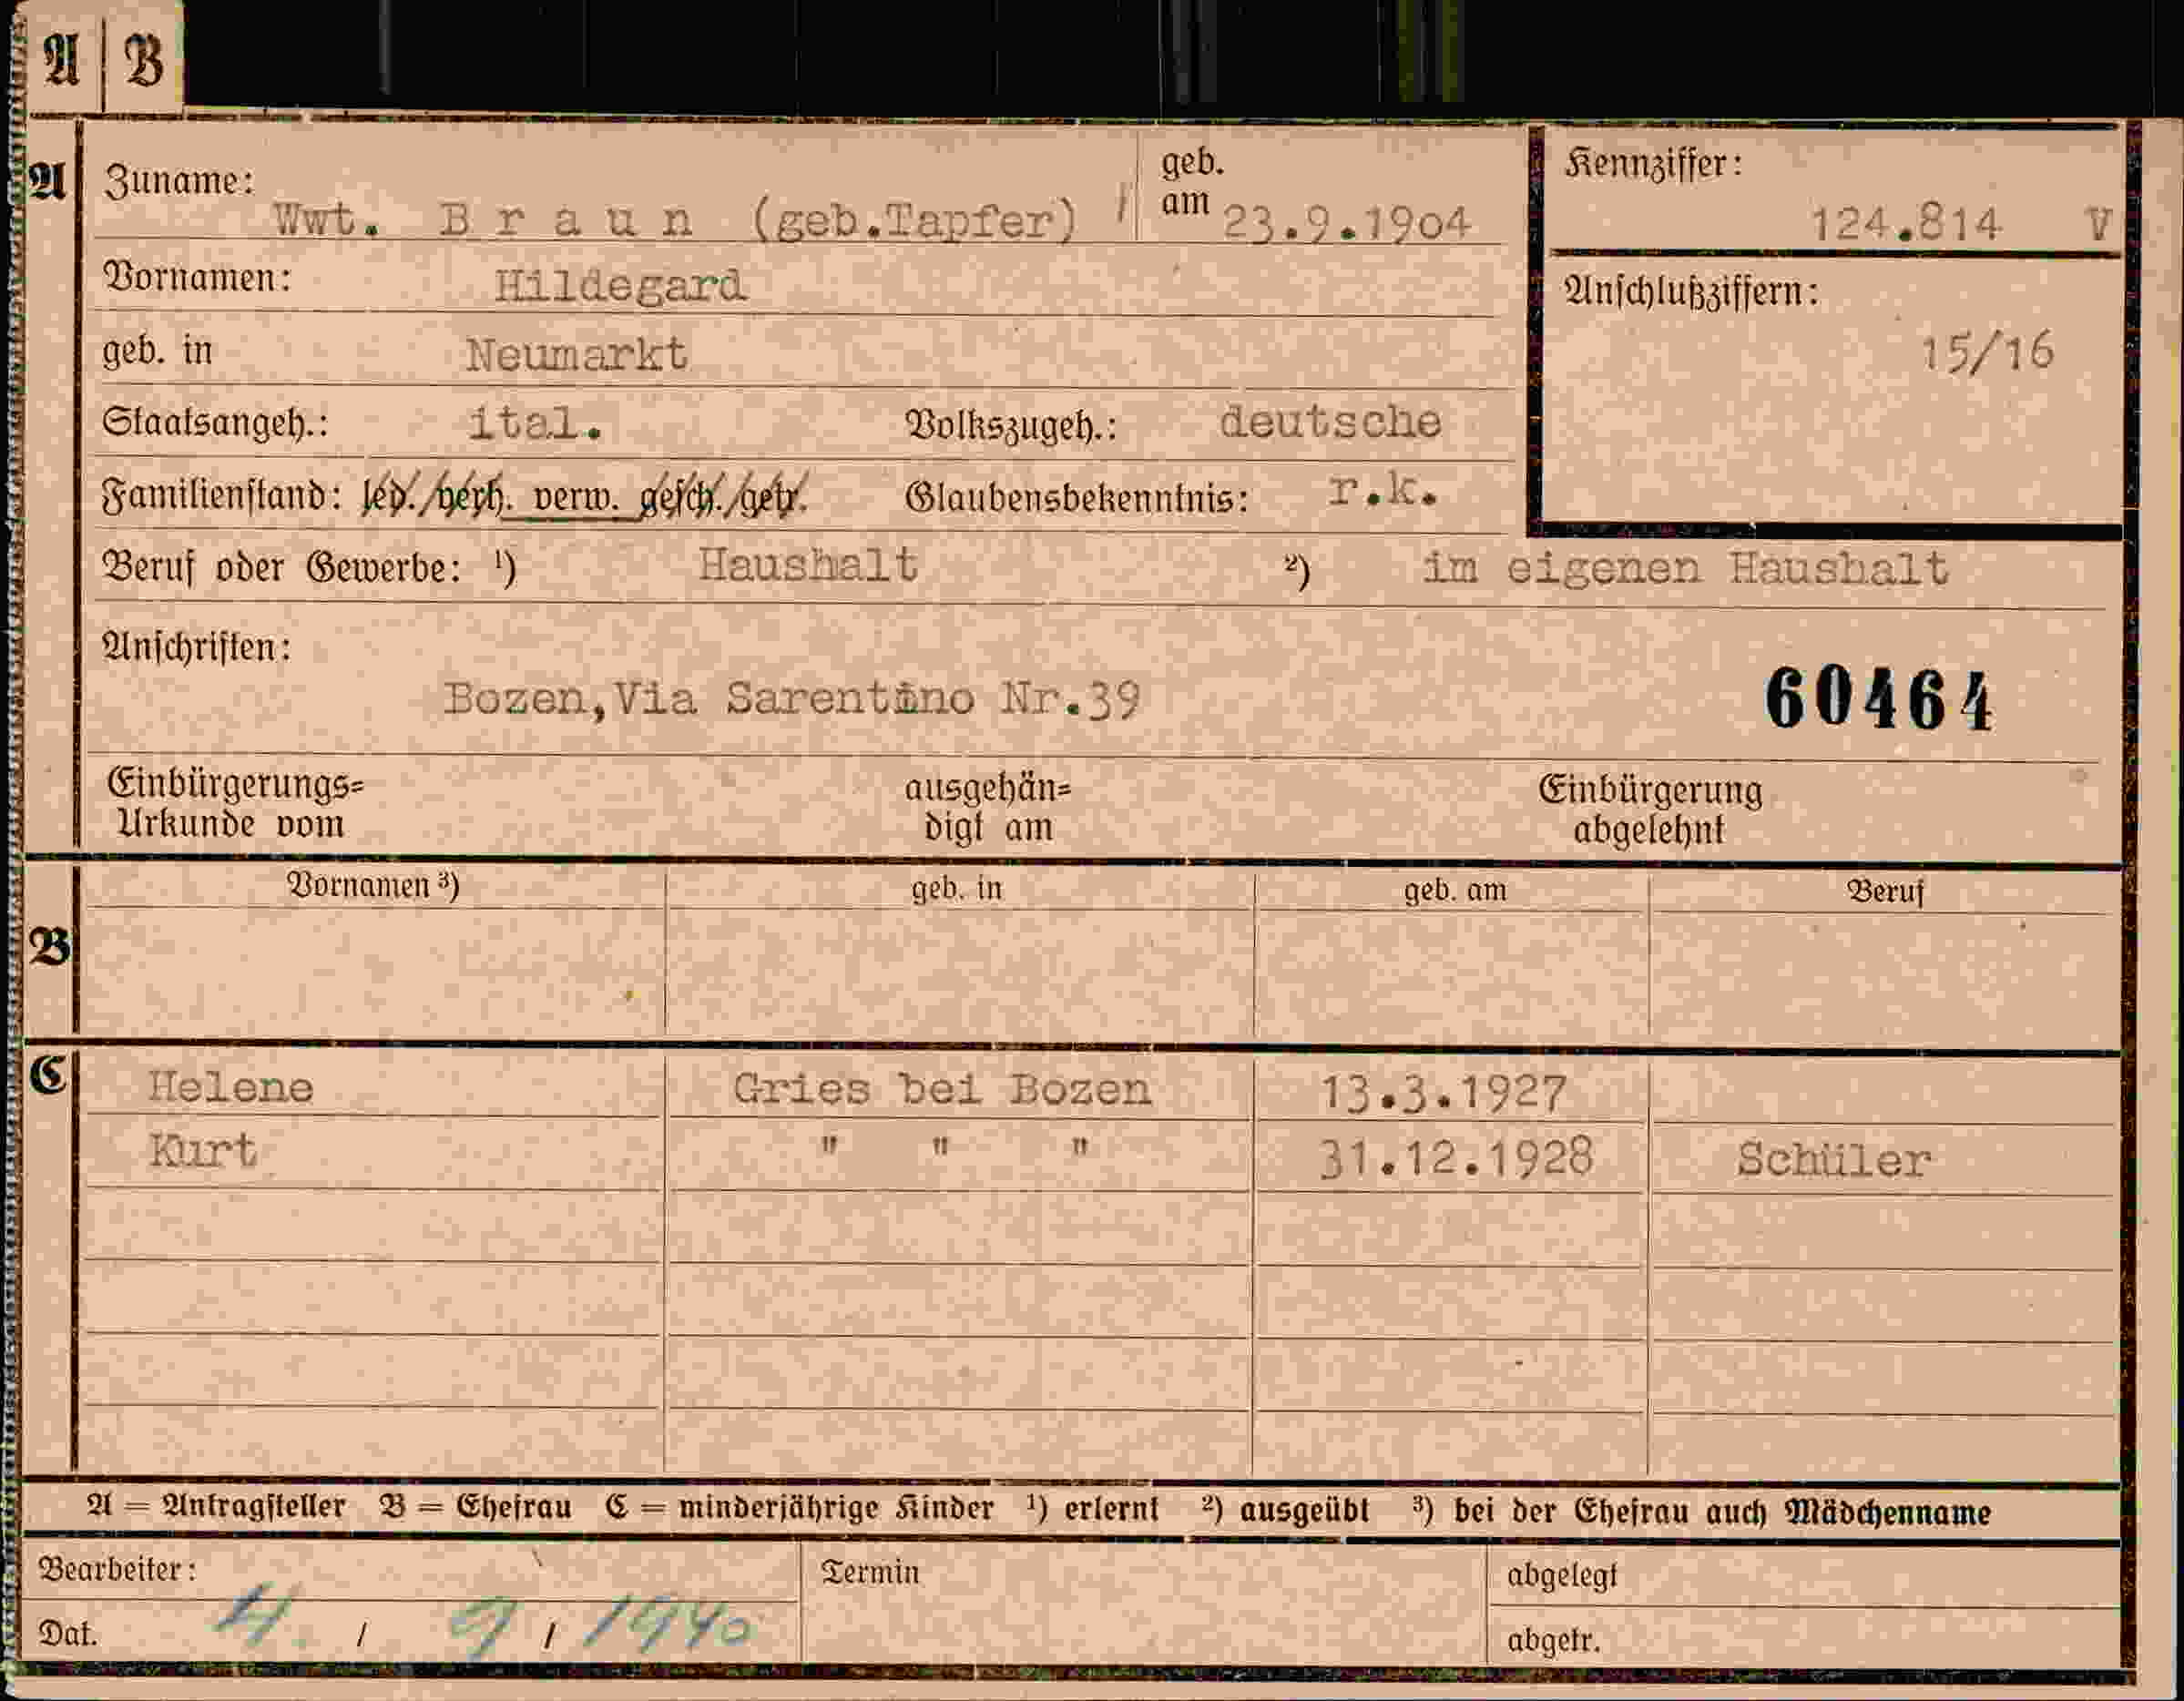 A | B
A Zuname: Wwt. B r a u n (geb.Tapfer) geb. am 23.9.1904
Kennziffer: 124.814 V
Vornamen: Hildegard
Anschlußziffern: 15/16
geb. in Neumarkt
Staatsangeh.: ital. Volkszugeh.: deutsche
Familienstand: led./verh. verw. gesch./getr. Glaubensbekenntnis: r.k.
Beruf oder Gewerbe: ¹) Haushalt ²) im eigenen Haushalt
Anschriften:
Bozen,Via Sarentino Nr.39 60464
Einbürgerungs= ausgehän= Einbürgerung
Urkunde vom digt am abgelehnt
B Vornamen ³) geb. in geb. am Beruf
C Helene Gries bei Bozen 13.3.1927
Kurt " " " 31.12.1928 Schüler
A = Antragsteller B = Ehefrau C = minderjährige Kinder ¹) erlernt ²) ausgeübt ³) bei der Ehefrau auch Mädchenname
Bearbeiter: Termin abgelegt
Dat. 4. / 9 / 1940 abgetr.